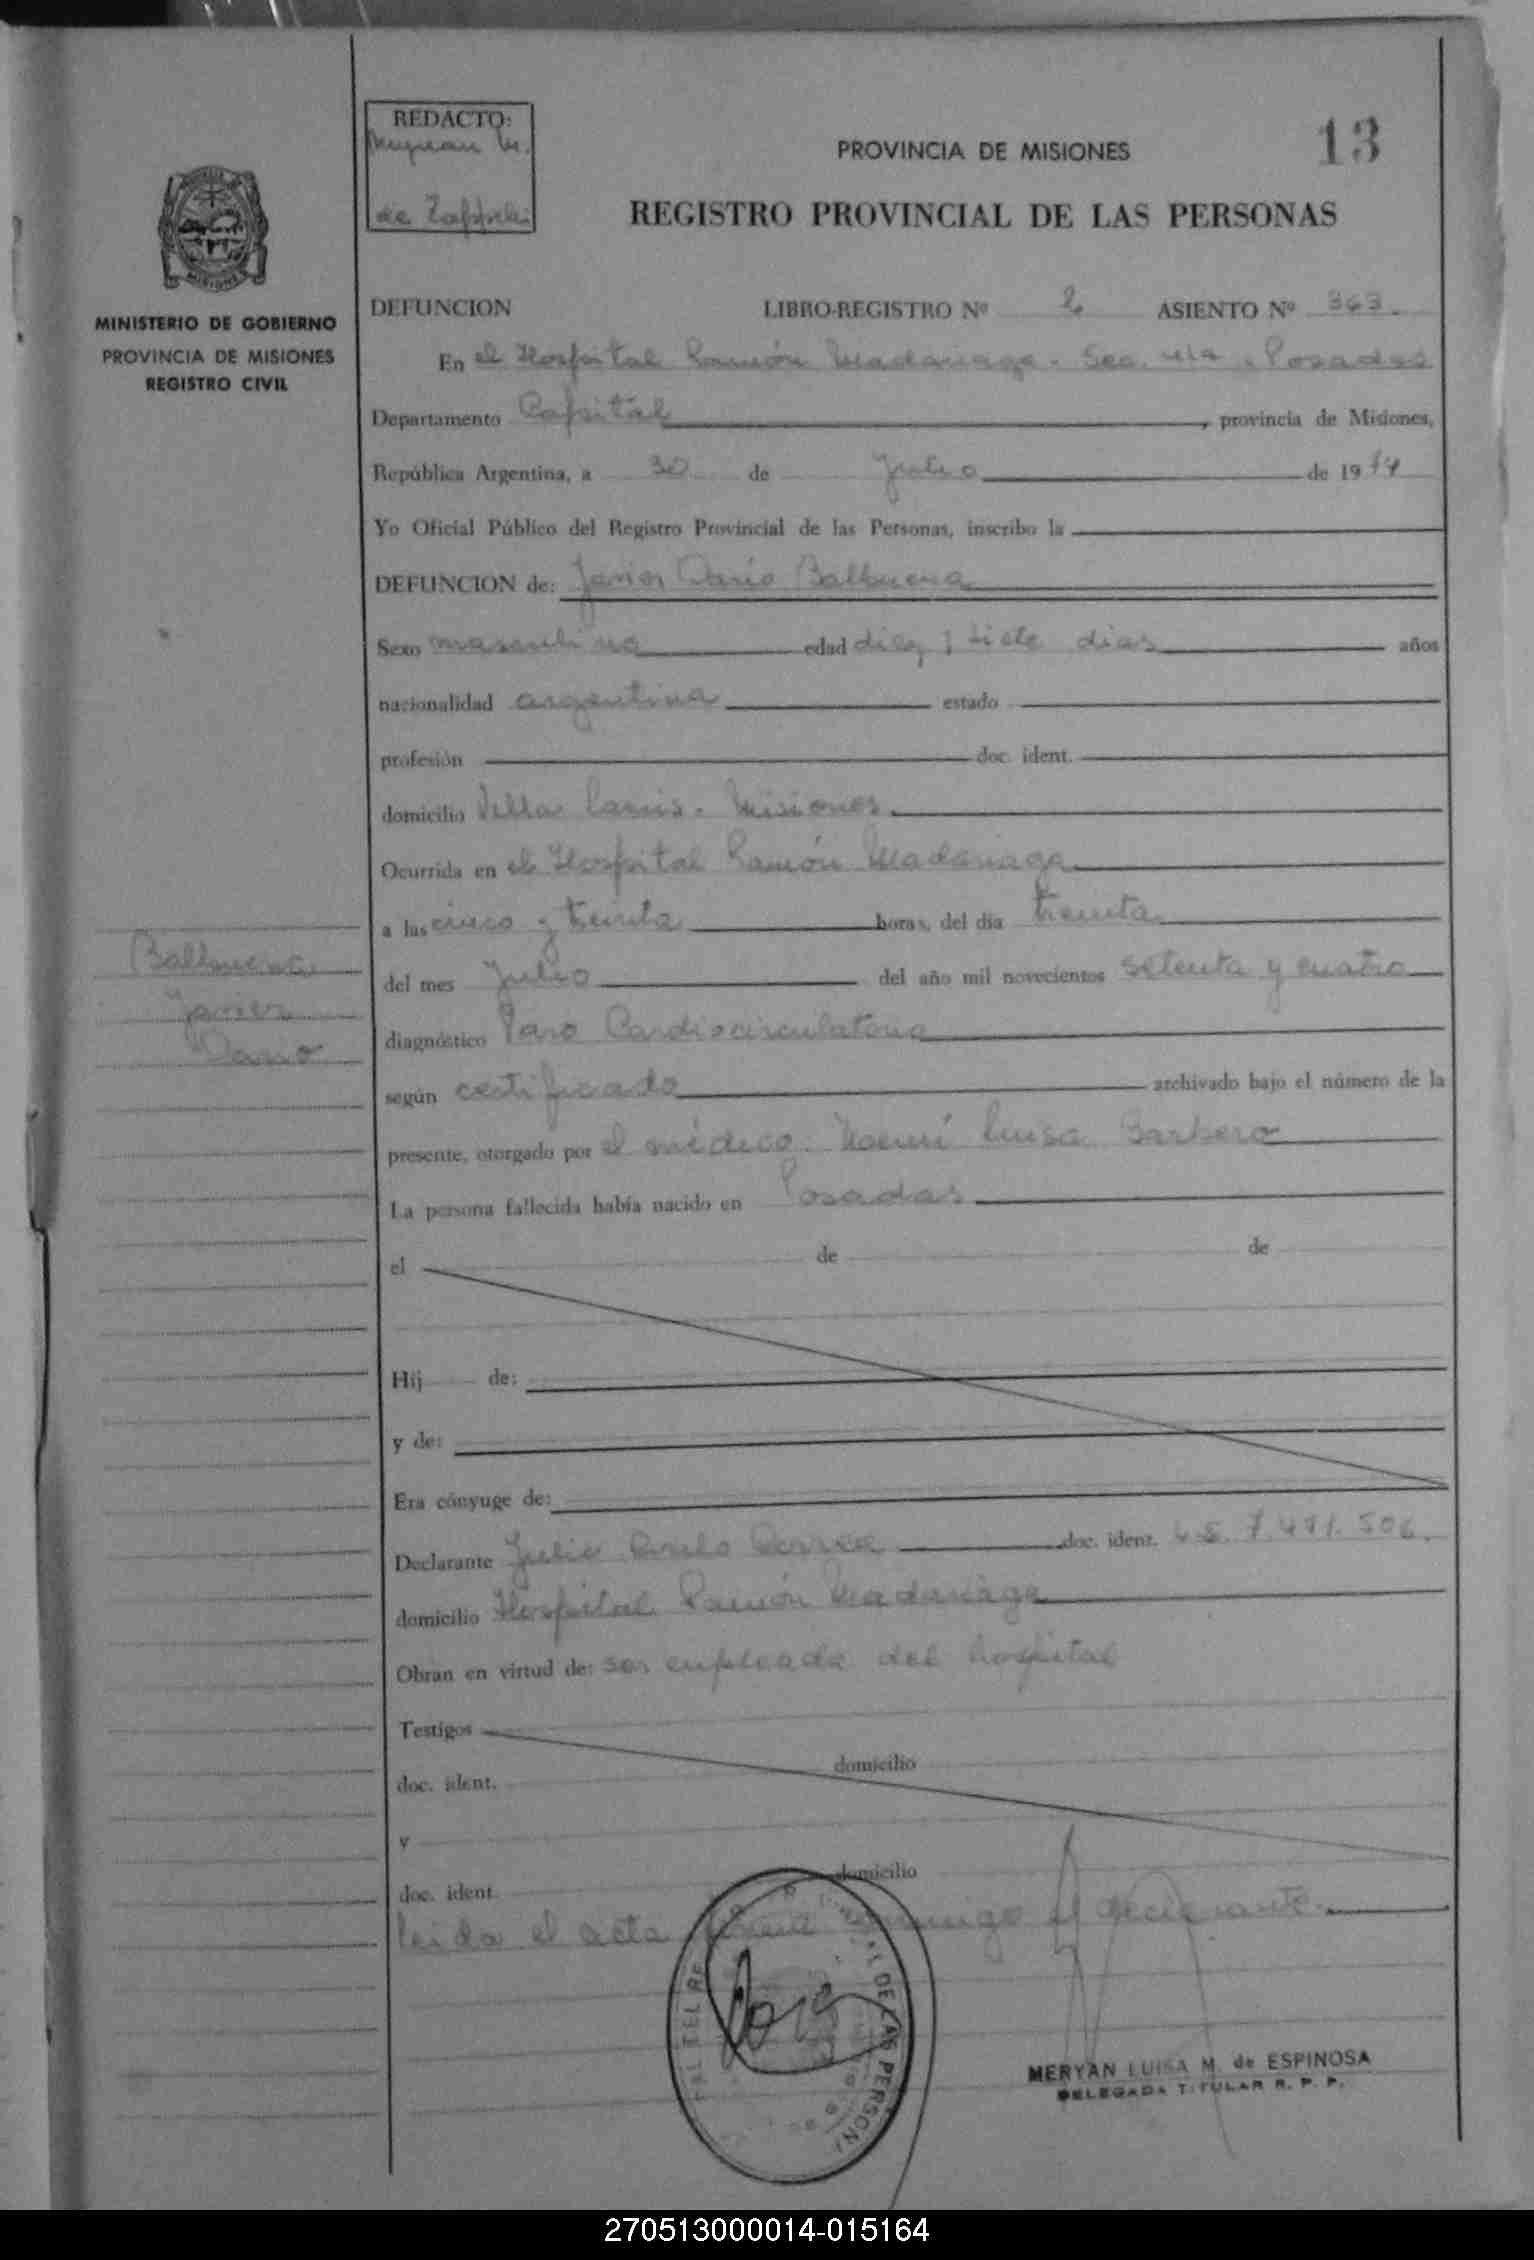 REDACTO:
de
13
PROVINCIA DE MISIONES
REGISTRO PROVINCIAL DE LAS PERSONAS
MISIONES
MINISTERIO DE GOBIERNO
PROVINCIA DE MISIONES
REGISTRO CIVIL
DEFUNCION LIBRO-REGISTRO Nº 2 ASIENTO Nº 363.
En el Hospital Ramón Madariaga - Sec. 4ta - Posadas
Departamento Capital, provincia de Misiones,
República Argentina, a 30 de Julio de 1974
Yo Oficial Público del Registro Provincial de las Personas, inscribo la
DEFUNCION de: Javier Darío Balbuena
Sexo masculino edad diez y siete dias años
nacionalidad argentina estado
profesión doc. ident.
domicilio Villa Lanus - Misiones
Ocurrida en el Hospital Ramón Madariaga
a las cinco y treinta horas, del día treinta
del mes Julio del año mil novecientos setenta y cuatro
diagnóstico Paro Cardiocirculatorio
según certificado archivado bajo el número de la
presente, otorgado por el médico: Noemí Luisa Barbero
La persona fallecida había nacido en Posadas
el de de
Hij de:
y de:
Era cónyuge de:
Declarante Julia doc. ident.
domicilio Hospital Ramón Madariaga
Obran en virtud de: ser empleada del hospital
Testigos
doc. ident. domicilio
y
doc. ident. domicilio
leida el acta firma conmigo el declarante.
Balbuena
Javier
Dario
DE LAS PERSONAS
MERYAN LUISA M. de ESPINOSA
DELEGADA TITULAR R. P. P.
270513000014-015164